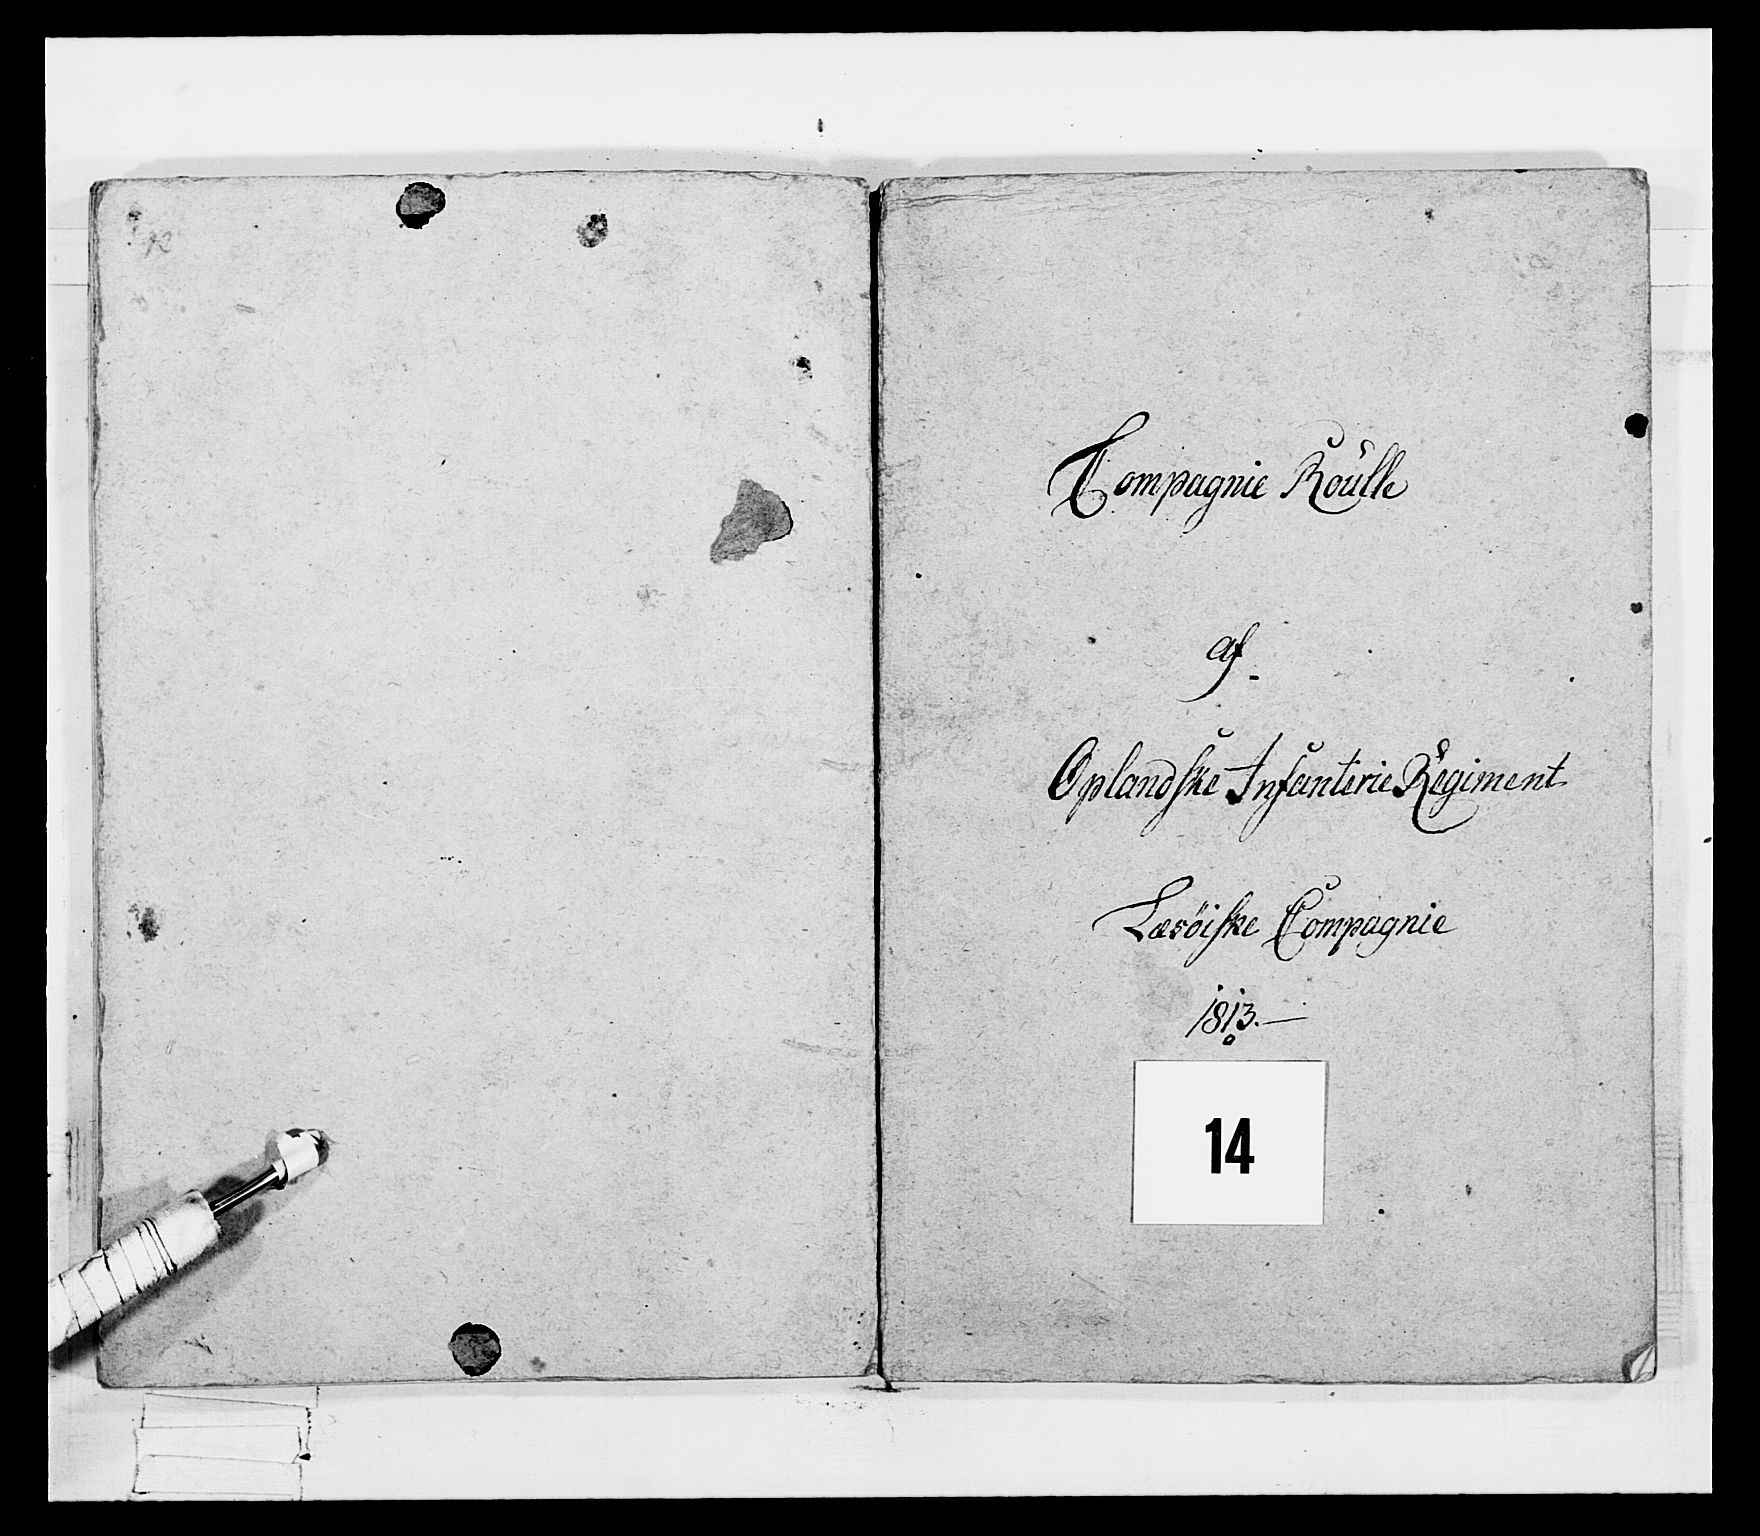 Compagnie Roülle
af
Oplandske Infanterie Regiment
Læsöiske Compagnie
1813.
14